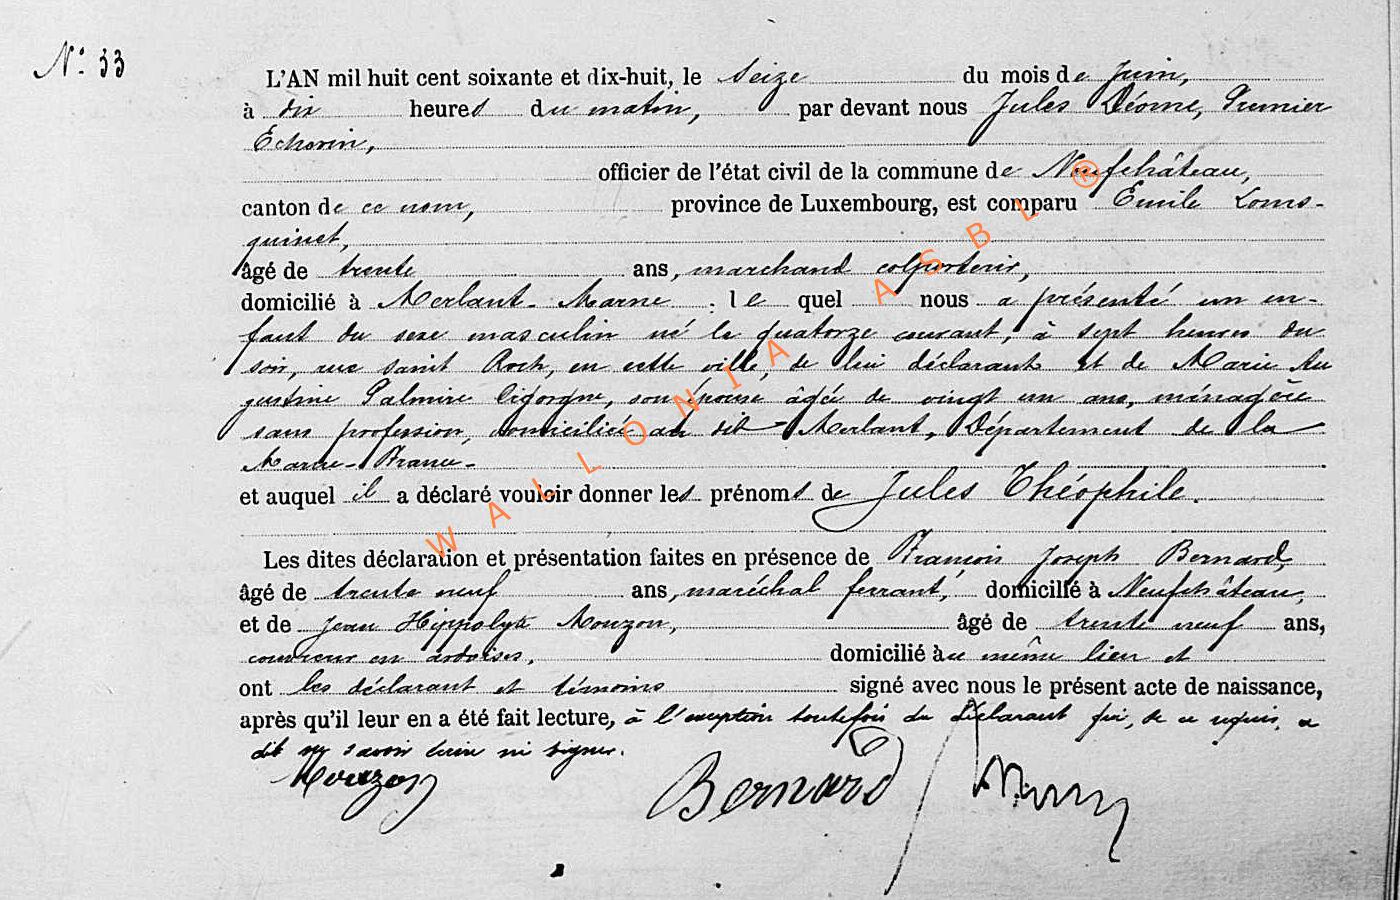 N.º 33
L'AN mil huit cent soixante et dix-huit, le seize du mois de Juin,
à dix heures du matin, par devant nous Jules Déome, Premier
Echevin,
officier de l'état civil de la commune de Neufchâteau,
canton de ce nom, province de Luxembourg, est comparu Emile Lons-
quinet,
âgé de trente ans, marchand colporteur,
domicilié à Merlaut-Marne : le quel nous a présenté un en-
fant du sexe masculin né le quatorze courant, à sept heures du
soir, rue saint Roch, en cette ville, de lui déclarant et de Marie Au
gustine Palmire Cigorgne, son épouse âgée de vingt un ans, ménagère
sans profession, domiciliée au dit Merlaut, Département de la
Marne-France-
et auquel il a déclaré vouloir donner les prénoms de Jules Théophile.
Les dites déclaration et présentation faites en présence de François Joseph Bernard,
âgé de trente neuf ans, maréchal ferrant, domicilié à Neufchâteau,
et de Jean Hippolyte Mouzon, âgé de trente neuf ans,
couvreur en ardoises, domicilié au même lieu et
ont les déclarant et témoins signé avec nous le présent acte de naissance,
après qu'il leur en a été fait lecture, à l'exception toutefois du Déclarant qui, de ce requis, a
dit ne savoir écrire ni signer.
Mouzon Bernard
WALLONIA ASBL ®